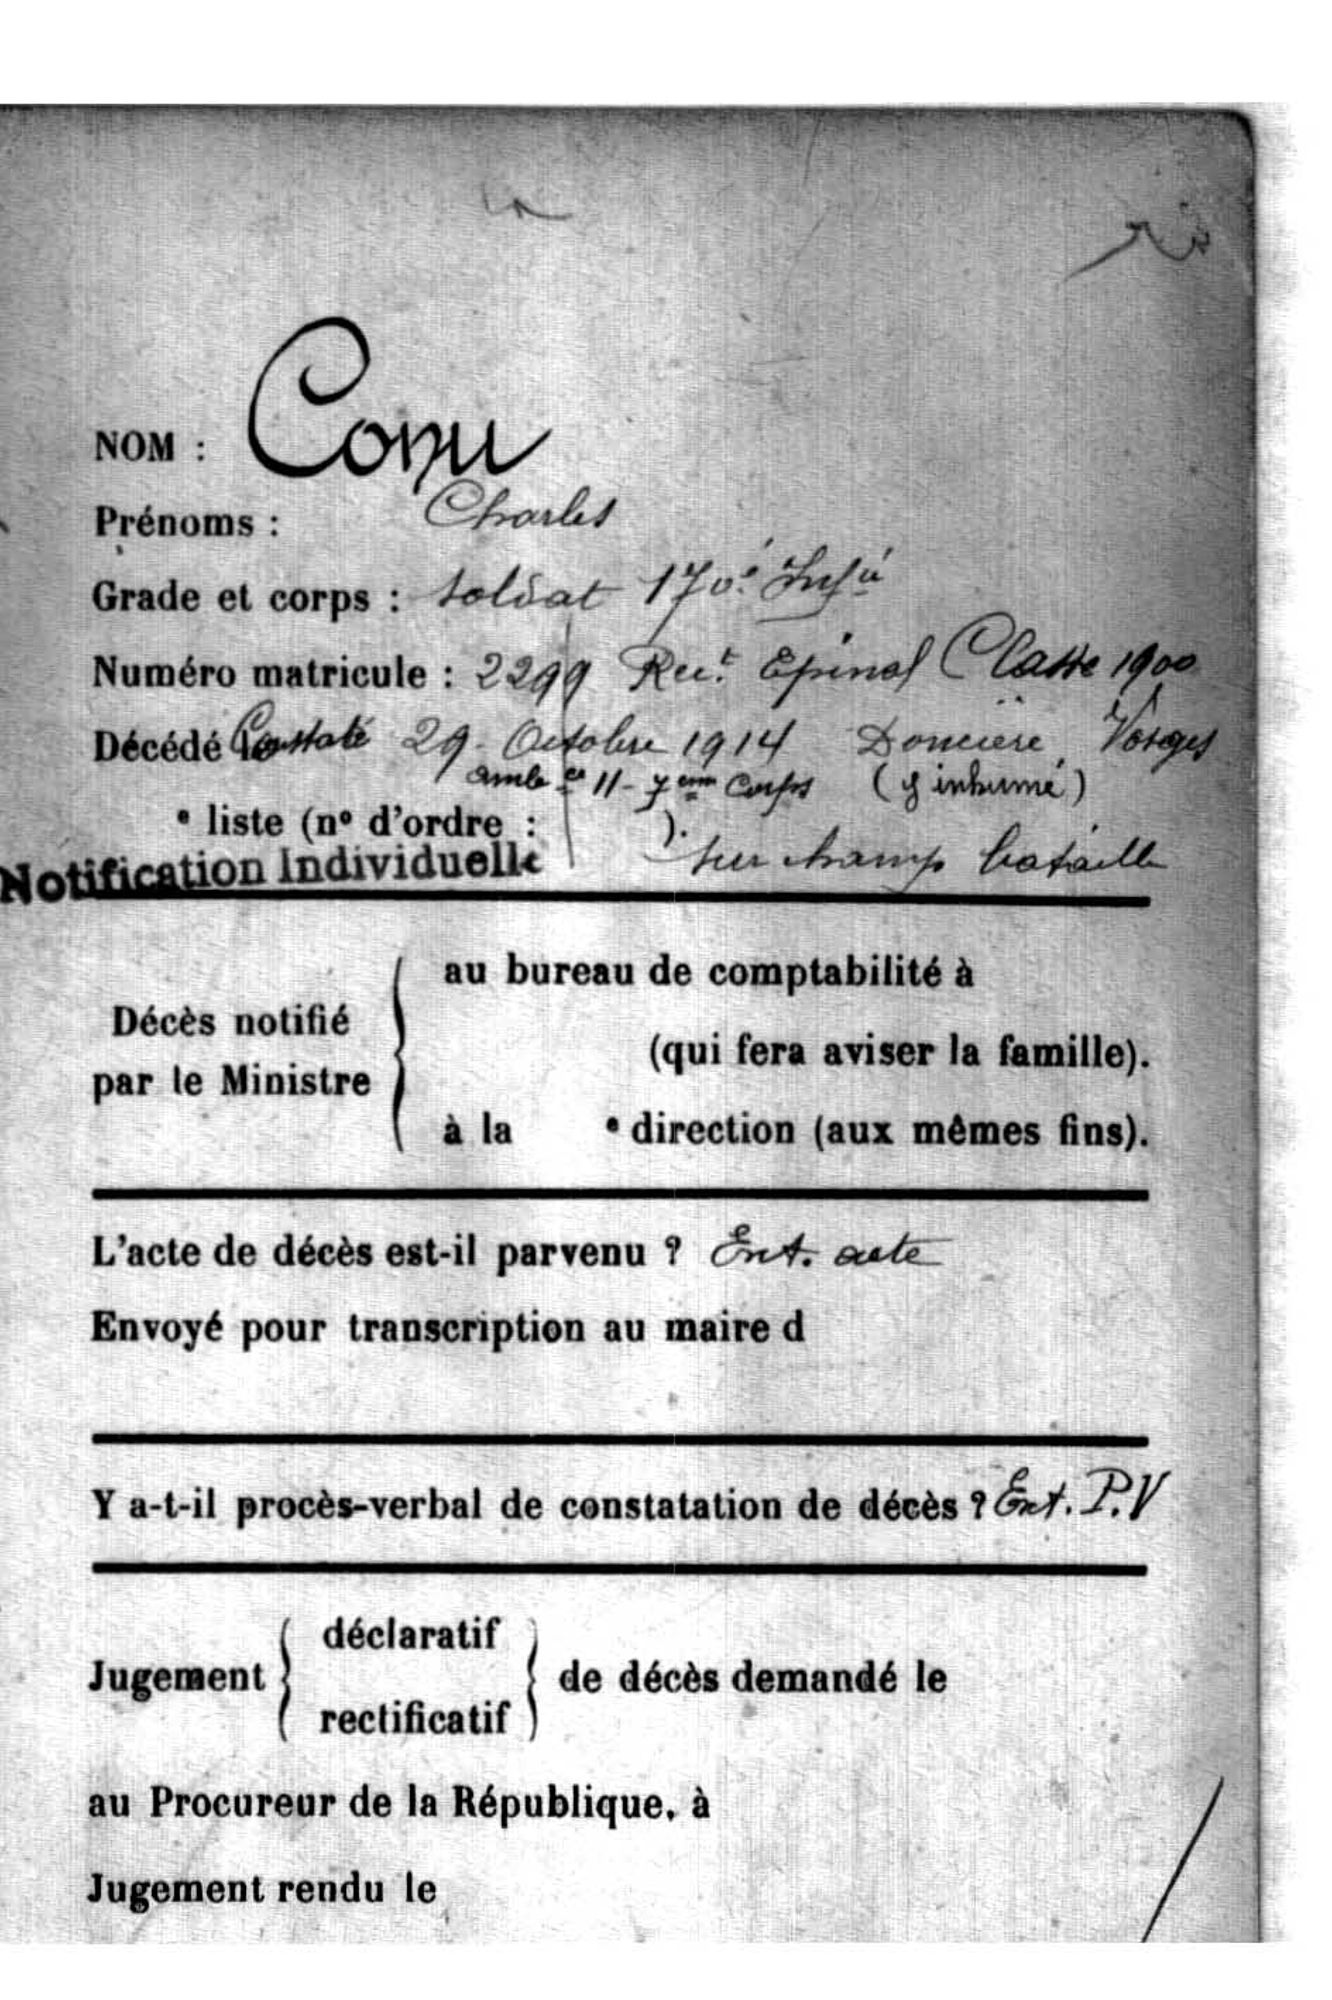 NOM : Conu
Prénoms : Charles
Grade et corps : soldat 170e Infie
Numéro matricule : 2299 Rect Epinal Classe 1900
Décédé le Constaté 29 Octobre 1914 Doncière Vosges
ambce 11 - 7eme Corps (y inhumé)
e liste (no d'ordre : ).
Notification Individuelle sur champ bataille
au bureau de comptabilité à
Décès notifié
(qui fera aviser la famille).
par le Ministre
à la e direction (aux mêmes fins).
L'acte de décès est-il parvenu ? Ext. acte
Envoyé pour transcription au maire d
Y a-t-il procès-verbal de constatation de décès ? Ext. P.V
déclaratif
Jugement de décès demandé le
rectificatif
au Procureur de la République, à
Jugement rendu le